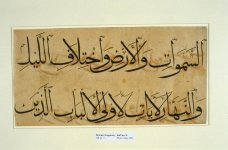 السموات والأرض واختلاف الليل
والنهار لآيات لأولي الألباب الذين